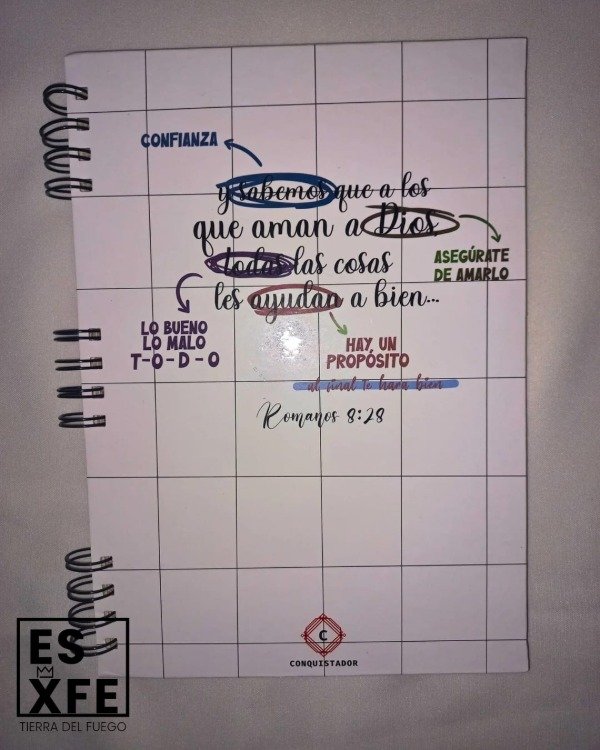 CONFIANZA
y sabemos que a los
que aman a Dios
todas las cosas
les ayudan a bien...
ASEGÚRATE
DE AMARLO
LO BUENO
LO MALO
T-O-D-O
HAY UN
PROPÓSITO
al final te hara bien
Romanos 8:28
C
CONQUISTADOR
ES
XFE
TIERRA DEL FUEGO